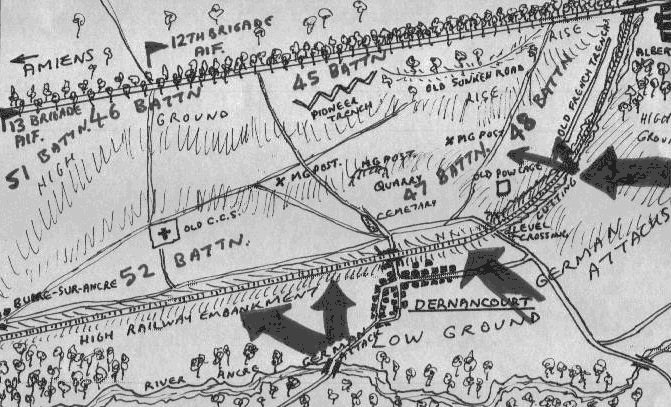 12TH BRIGADE
AIF.
AMIENS
RISE
45 BATTN
OLD SUNKEN ROAD
ALBERT
PIONEER
TRENCH
RISE
OLD FRENCH TRENCH
13 BRIGADE
AIF.
46 BATTN
GROUND
48 BATTN.
51 BATTN.
HIGH
HIGH
GROUND
MG POST
MG POST.
MG POST
47 BATTN.
QUARRY
OLD POW CAGE
CEMETARY
CUTTING
OLD C.C.S.
LEVEL
CROSSING
52 BATTN.
GERMAN
ATTACK
BUIRE-SUR-ANCRE
RAILWAY EMBANKMENT
HIGH
DERNANCOURT
LOW GROUND
GERMAN
ATTACK
RIVER ANCRE